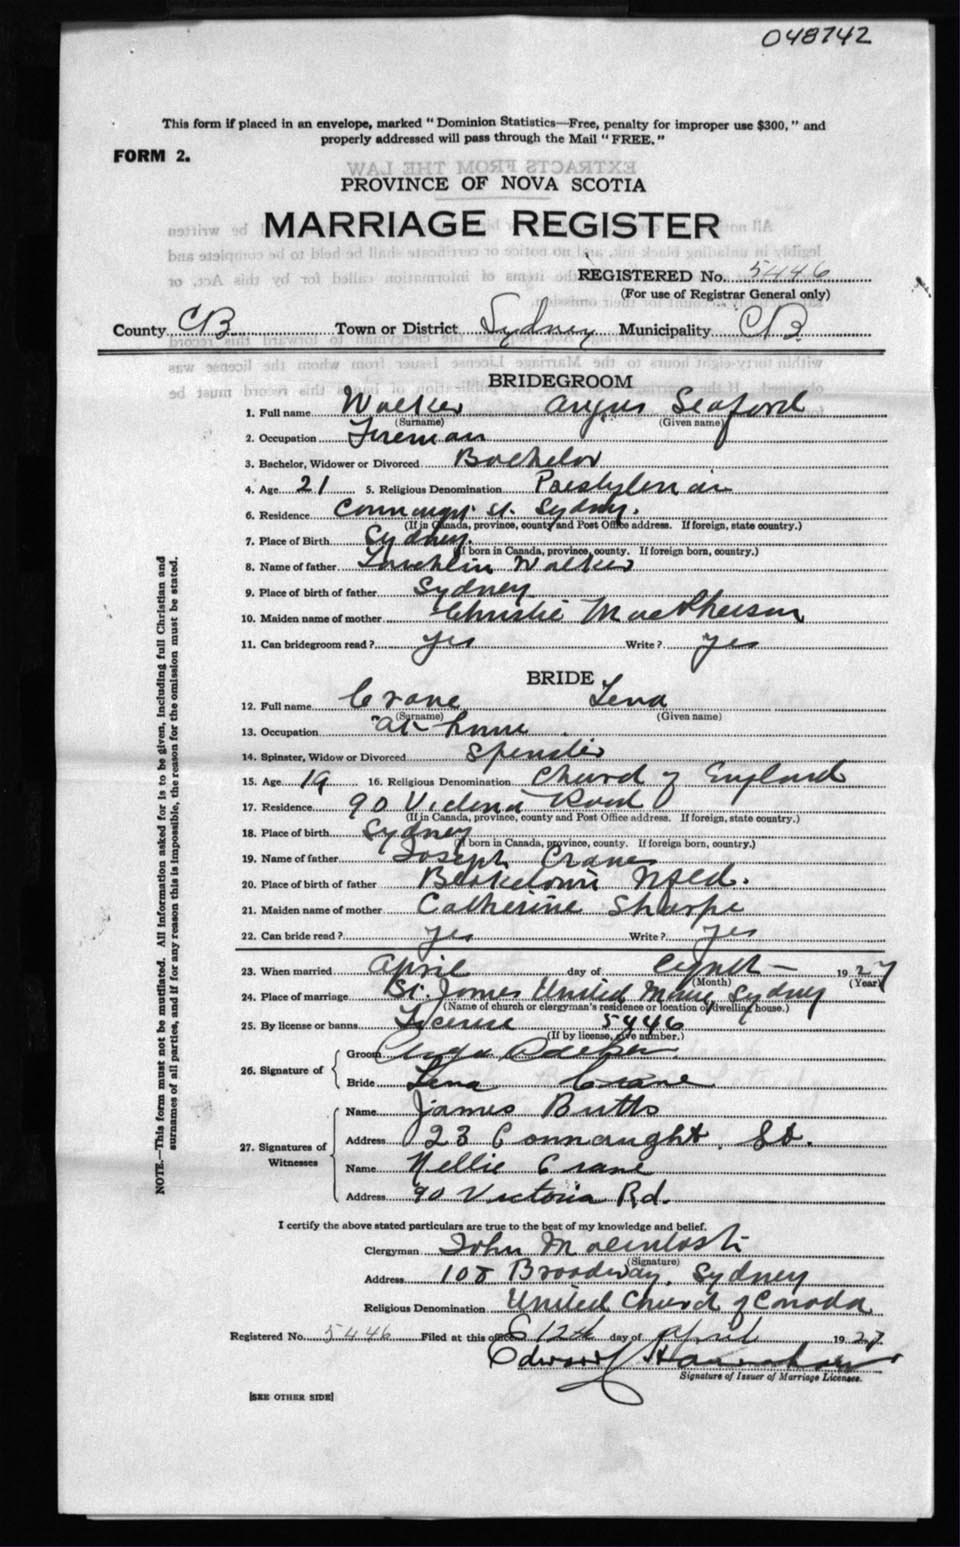 048742
This form if placed in an envelope, marked "Dominion Statistics—Free, penalty for improper use $300," and
properly addressed will pass through the Mail "FREE."
FORM 2.
EXTRACTS FROM THE LAW
PROVINCE OF NOVA SCOTIA
MARRIAGE REGISTER
REGISTERED No. 5446
(For use of Registrar General only)
County CB Town or District Sydney Municipality CB
BRIDEGROOM
1. Full name Walker Angus Seaford
(Surname) (Given name)
2. Occupation Fireman
3. Bachelor, Widower or Divorced Bachelor
4. Age 21 5. Religious Denomination Presbyterian
6. Residence Connaught St. Sydney.
(If in Canada, province, county and Post Office address. If foreign, state country.)
7. Place of Birth Sydney
(If born in Canada, province, county. If foreign born, country.)
8. Name of father Lauchlin Walker
9. Place of birth of father Sydney
10. Maiden name of mother Christie MacPherson
11. Can bridegroom read? yes Write? yes
BRIDE
12. Full name Crane Lena
(Surname) (Given name)
13. Occupation at home
14. Spinster, Widow or Divorced Spinster
15. Age 19 16. Religious Denomination Church of England
17. Residence 90 Victoria Road
(If in Canada, province, county and Post Office address. If foreign, state country.)
18. Place of birth Sydney
(If born in Canada, province, county. If foreign born, country.)
19. Name of father Joseph Crane
20. Place of birth of father Nfld.
21. Maiden name of mother Catherine Sharpe
22. Can bride read? yes Write? yes
23. When married April day of 1927
(Month) (Year)
24. Place of marriage St. James United Manse, Sydney
(Name of church or clergyman's residence or location of dwelling house.)
25. By license or banns License 5446
(If by license, give number.)
26. Signature of
Groom
Bride Lena Crane
27. Signatures of Witnesses
Name James Butts
Address 23 Connaught St.
Name Nellie Crane
Address 90 Victoria Rd.
I certify the above stated particulars are true to the best of my knowledge and belief.
Clergyman John MacIntosh
(Signature)
Address 108 Broadway, Sydney
Religious Denomination United Church of Canada
Registered No. 5446 Filed at this office 12th day of April 1927
Edward
Signature of Issuer of Marriage Licenses.
[SEE OTHER SIDE]
NOTE.—This form must not be mutilated. All information asked for is to be given, including full Christian and
surnames of all parties, and if for any reason this is impossible, the reason for the omission must be stated.